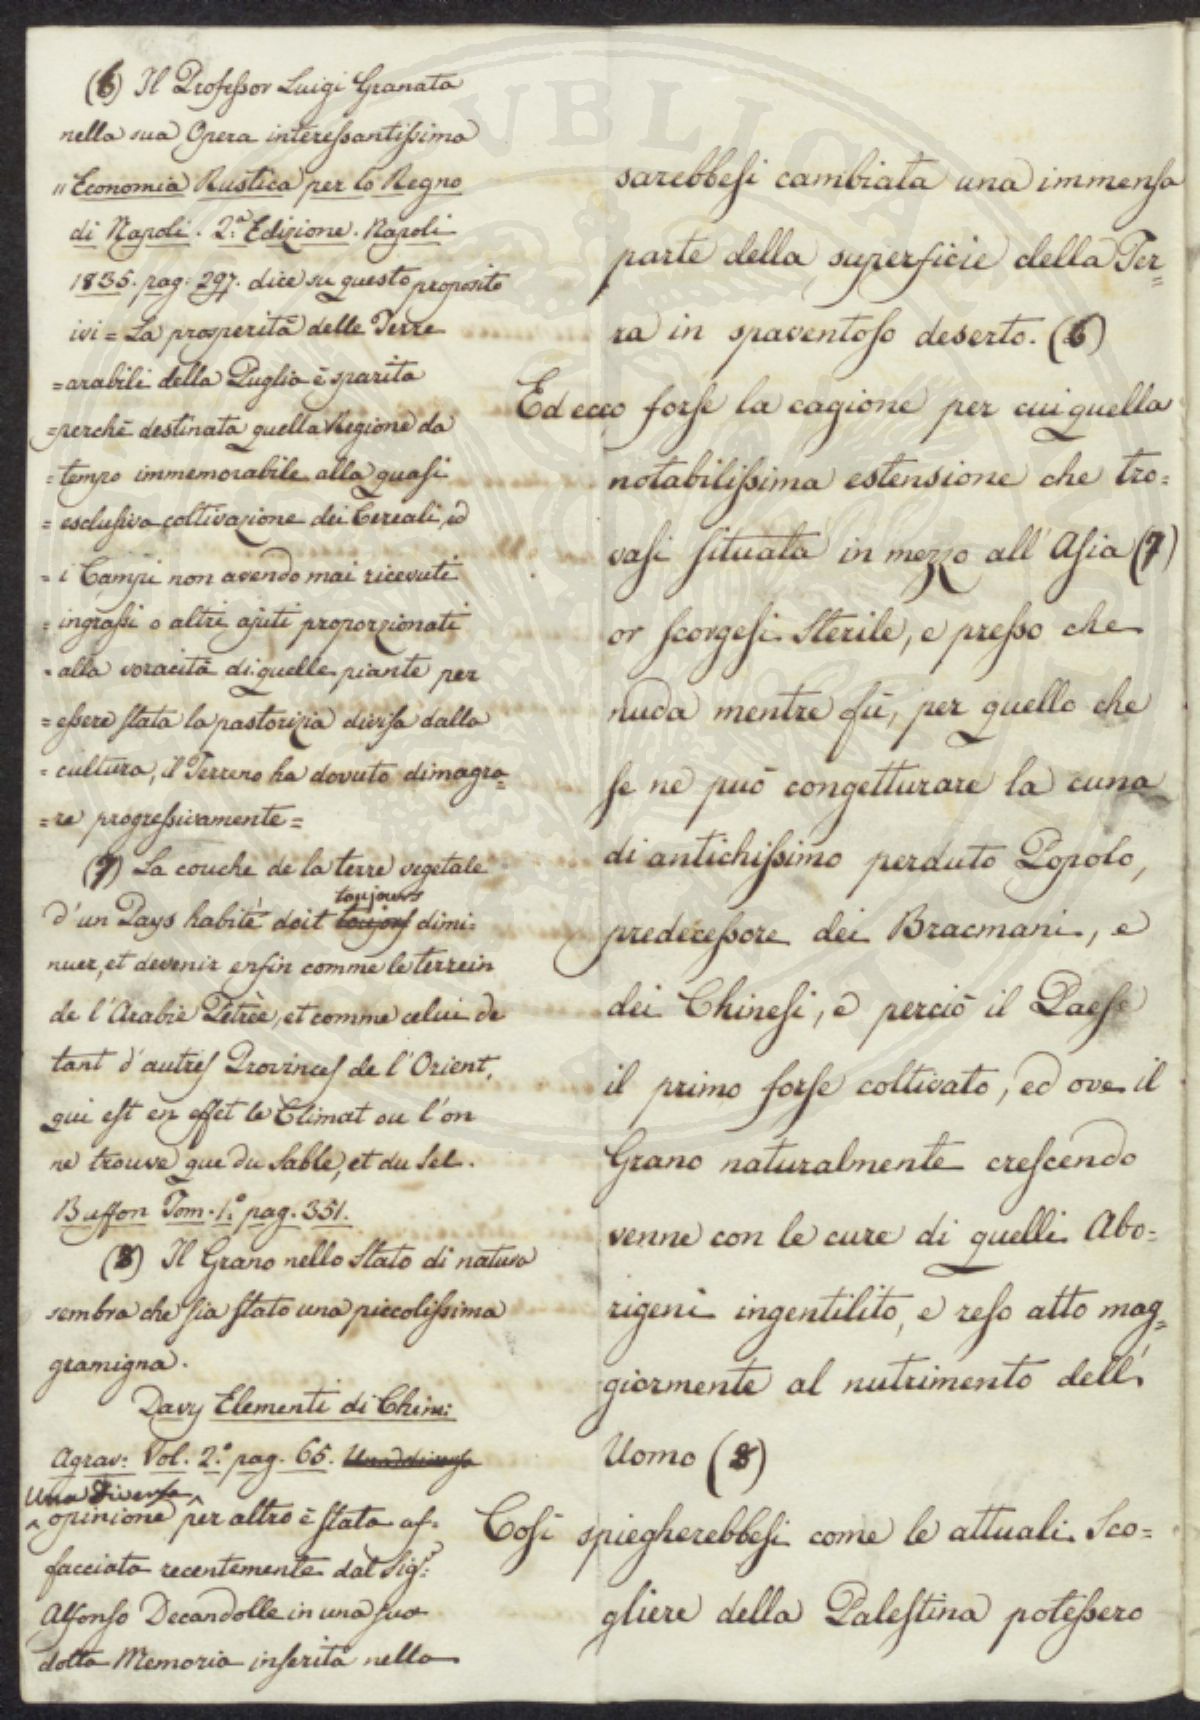 (6) Il Professor Luigi Granata
nella sua Opera interessantissima
" Economia Rustica per lo Regno
di Napoli. 2.a Edizione. Napoli
1835. pag: 297. dice su questo proposito
ivi = La prosperità delle Terre
= arabili della Puglia è sparita
= perchè destinata quella Regione da
= tempo immemorabile alla quasi
= esclusiva coltivazione dei Cereali, ed
= i Campi non avendo mai ricevuti
= ingrassi o altri ajuti proporzionati
= alla voracità di quelle piante per
= essere stata la pastorizia divisa dalla
= cultura, il Terreno ha dovuto dimagra=
= re progressivamente =
(7) La couche de la terre vegetale
d'un Days habité doit toujours toujors dimi:
nuer, et devenir enfin comme le terrein
de l'Arabie Pétrèe, et comme celui de
tant d'autres Provinces de l'Orient,
qui est en effet le Climat ou l'on
ne trouve que du sable, et du sel.
Buffon Tom. 1.o pag. 351.
(8) Il Grano nello stato di natura
sembra che sia stato una piccolissima
gramigna.
Davy Elementi di Chim:
Agrar: Vol. 2.o pag. 65. Una diversa
Una diversa
opinione per altro è stata af=
facciata recentemente dal Sig.r
Alfonso Decandolle in una sua
dotta Memoria inserita nella
sarebbesi cambiata una immensa
parte della superficie della Ter=
ra in spaventoso deserto. (6)
Ed ecco forse la cagione per cui quella
notabilissima estensione che tro=
vasi situata in mezzo all'Asia (7)
or scorgesi sterile, e presso che
nuda mentre fù, per quello che
se ne può congetturare la cuna
di antichissimo perduto Popolo,
predecessore dei Bracmani, e
dei Chinesi, e perciò il Paese
il primo forse coltivato, ed ove il
Grano naturalmente crescendo
venne con le cure di quelli Abo=
rigeni ingentilito, e reso atto mag=
giormente al nutrimento dell'
Uomo (8)
Cosi spiegherebbesi come le attuali Sco=
gliere della Palestina potessero